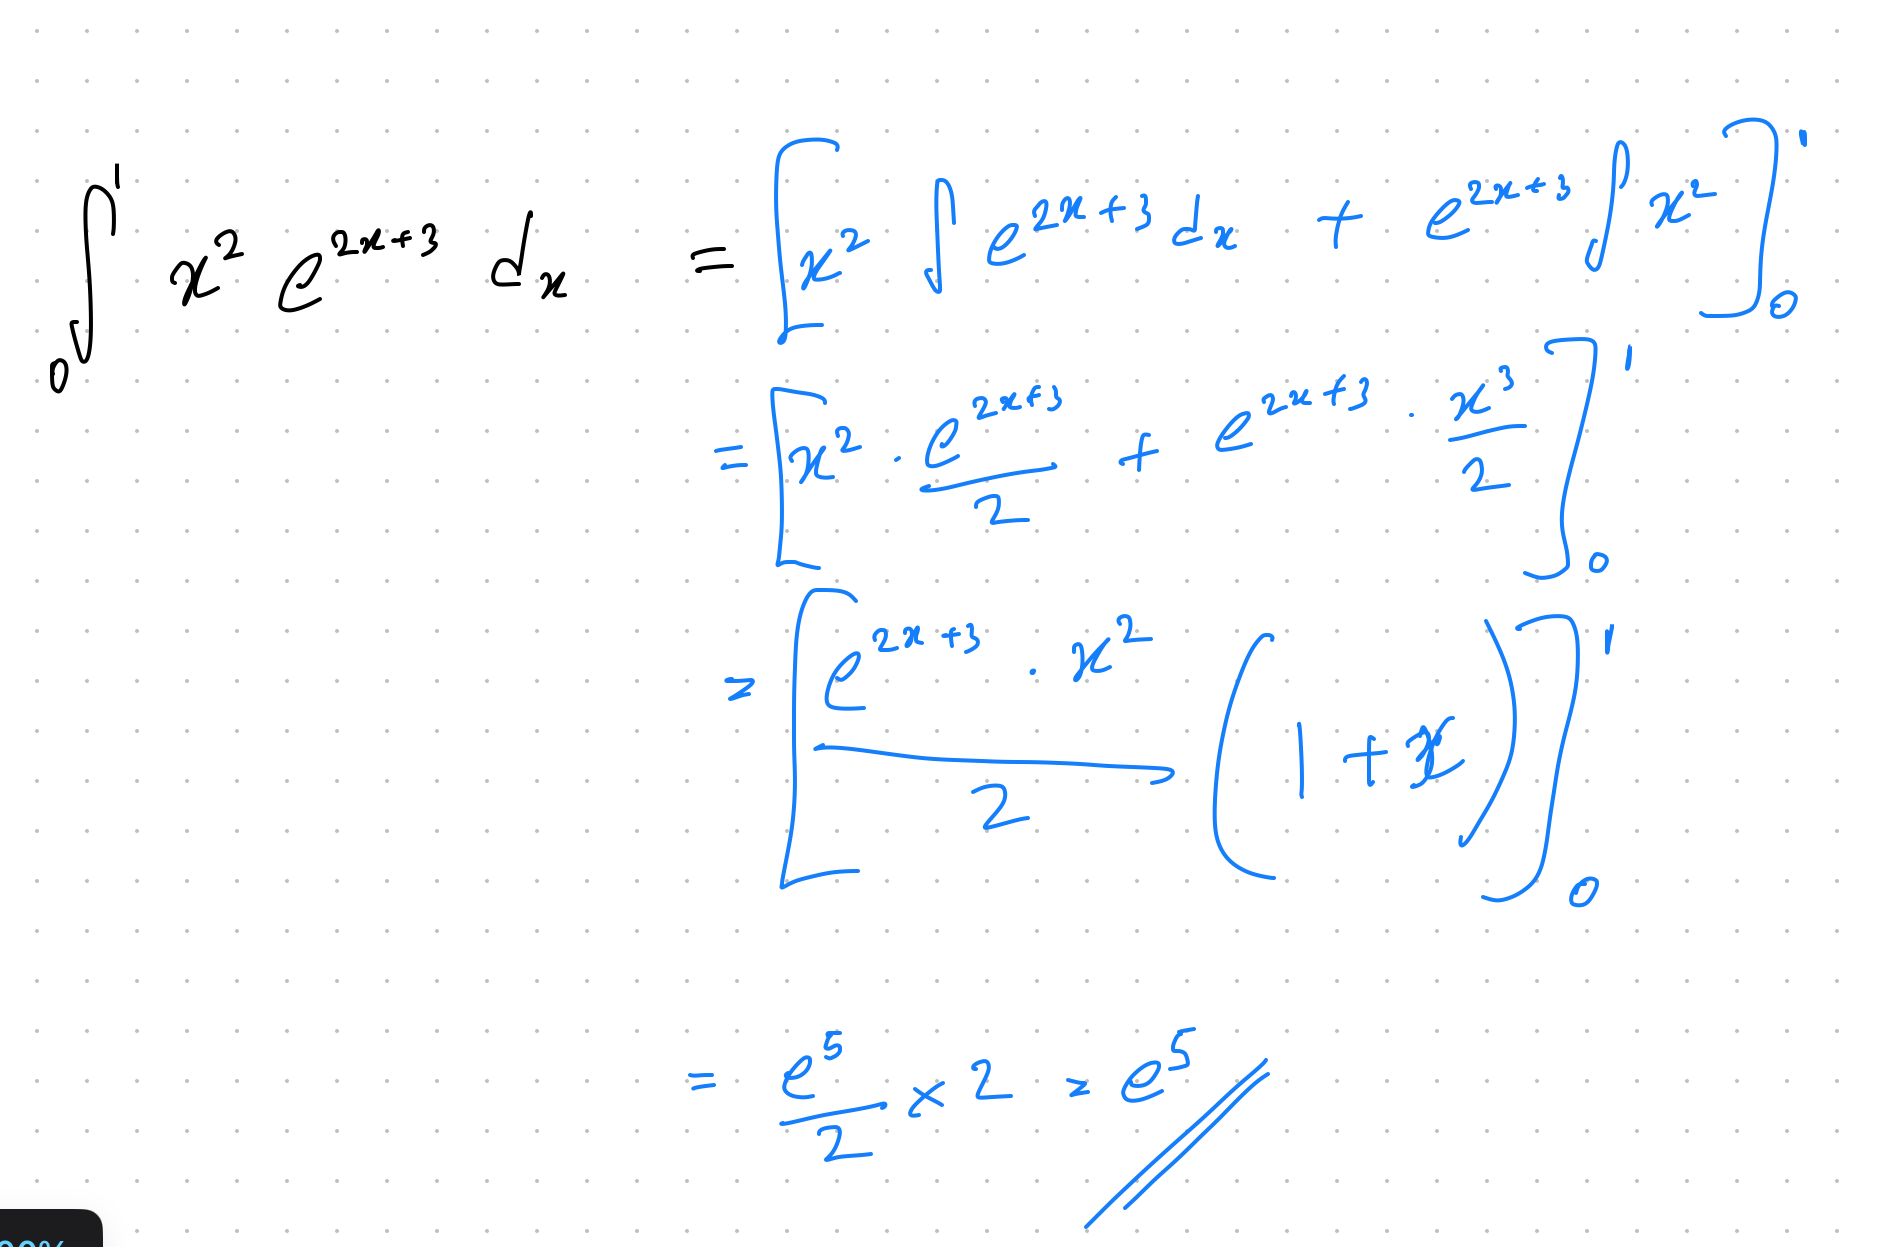 ∫₀¹ x² e^(2x+3) dx = [x² ∫ e^(2x+3) dx + e^(2x+3) ∫ x²]₀¹
= [x² · e^(2x+3)/2 + e^(2x+3) · x³/2]₀¹
= [e^(2x+3) · x²/2 (1 + x)]₀¹
= e⁵/2 × 2 = e⁵